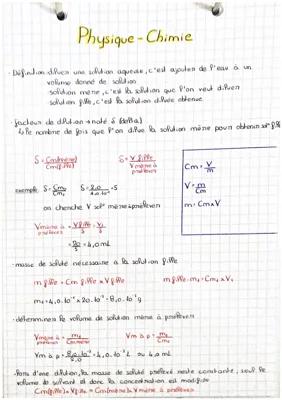 Physique-Chimie
· Définition: diluer une solution aqueuse, c'est ajouter de l'eau à un
volume donné de solution
solution mère, c'est la solution que l'on veut diluer
solution fille, c'est la solution diluée obtenue
· facteur de dilution → noté δ (delta)
↳ le nombre de fois que l'on dilue la solution mère pour obtenir sol° fille
δ = Cm(mère) / Cm(fille)
δ = V fille / V mère à prélever
Cm = m/V
V = m/Cm
m = Cm×V
exemple δ = Cm₀ / Cm₁
on cherche V sol° mère à prélever
V mère à prélever = V fille / δ = V₁ / δ
= 20 / 5 = 4,0 mL
· masse de soluté nécessaire à la solution fille
m fille = Cm fille × V fille
m fille: m₁ = Cm₁ × V₁
m₁ = 4,0.10⁻¹ × 20.10⁻³ = 8,0.10⁻³ g
· déterminer le volume de solution mère à prélever
V mère à prélever = m₁ / Cm mère
Vm à p = 8,0.10⁻³ / 2,0 = 4,0.10⁻³ L ou 4,0 mL
· Lors d'une dilution, la masse de soluté prélevé reste constante, seul le
volume de solvant et donc la concentration est modifié
Cm(fille) × V fille = Cm(mère) × V mère à prélever